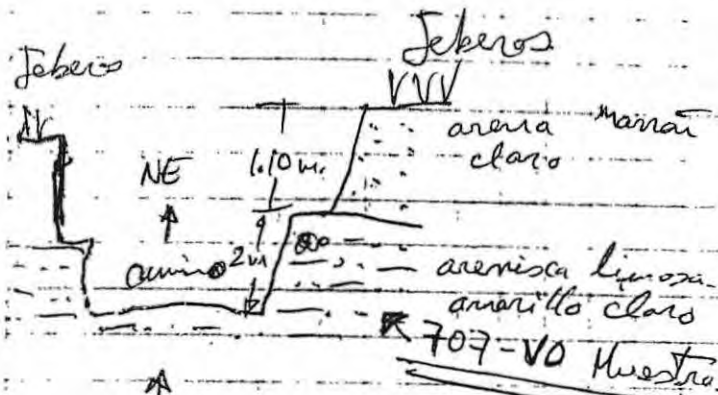 Jeberos
Jeberos
arena marrón
claro
NE
1.10 m.
camino
2 m
arenisca limosa
amarillo claro
707-VO Muestra